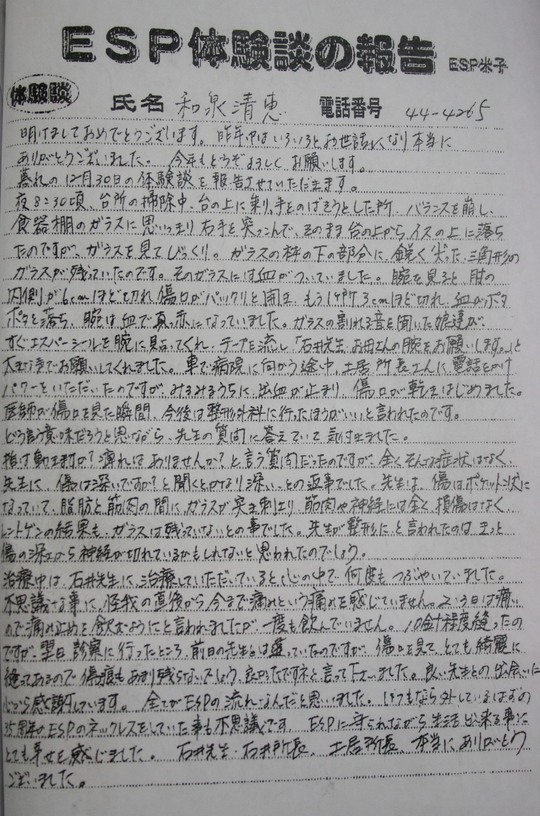 ESP体験談の報告 ESP米子
体験談 氏名 和泉清恵 電話番号 44-4265
明けましておめでとうございます。昨年中はいろいろとお世話になり本当に
ありがとうございました。今年もどうぞよろしくお願いします。
暮れの12月30日の体験談を報告させていただきます。
夜8:30頃、台所の掃除中、台の上に乗り手をのばそうとした所、バランスを崩し、
食器棚のガラスに思いっきり右手を突っこんで、そのまま台の上からイスの上に落ち
たのですが、ガラスを見てびっくり。ガラスの枠の下の部分に、鋭く尖った三角形の
ガラスが残っていたのです。そのガラスには血がついていました。腕を見ると、肘の
内側が6cmほど切れ、傷口がパックリと開き、もう1ヶ所、3cmほど切れ、血がポタ
ポタと落ち、腕は血で真赤になっていました。ガラスの割れる音を聞いた娘達が、
すぐエスパーシールを腕に貼ってくれ、テープを流し「石井先生、お母さんの腕をお願いします。」と
大きな声でお願いしてくれました。車で病院に向かう途中、土居所長さんに電話をかけ
パワーをいただいたのですが、みるみるうちに、出血が止まり、傷口が乾きはじめました。
医師が傷口を見た瞬間、今後は整形外科に行ったほうがいいと言われたのです。
どう言う意味だろうと思いながら、先生の質問に答えていて気付きました。
指は動きますか？痺れはありませんか？と言う質問だったのですが、全くそんな症状はなく、
先生に、傷は深いですか？と聞くとかなり深いとの返事でした。先生は、傷はポケット状に
なっていて、脂肪と筋肉の間にガラスが突き刺さり、筋肉や神経には全く損傷はなく
レントゲンの結果も、ガラスは残っていないとの事でした。先生が整形にと言われたのは、きっと
傷の深さから神経が切れているかもしれないと思われたのでしょう。
治療中は、石井先生に治療していただいていると心の中で何度もつぶやいていました。
不思議な事に、怪我の直後から今まで痛みという痛みを感じていません。2、3日は痛い
ので痛み止めを飲むようにと言われましたが、一度も飲んでいません。10針程度縫った
ですが、翌日診察に行ったところ、前日の先生とは違っていたのですが、傷口を見て、とても綺麗に
縫ってあるので傷痕もあまり残らないでしょう、良かったですネと言って下さいました。良い先生との出会いに
心から感謝しています。全てがESPの流れなんだと思いました。いつもなら外しているはずの
35周年のESPのネックレスをしていた事も不思議です。ESPに守られながら生活出来る事に
とても幸せを感じました。石井先生、石井所長、土居所長、本当にありがとう
ございました。